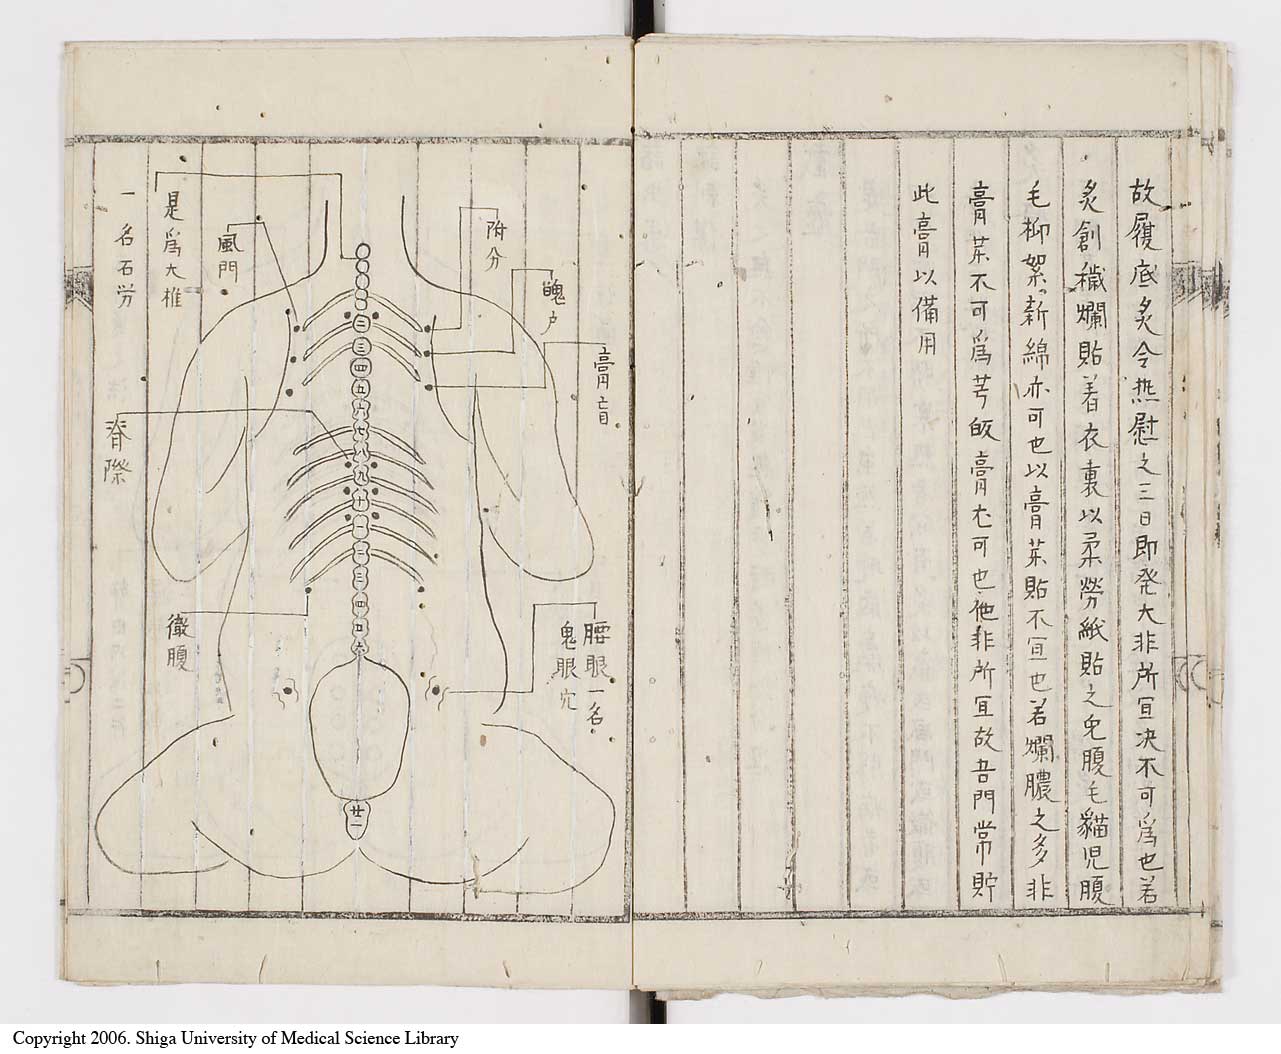 故履底炙令热慰之三日即発大非所宜决不可爲也若
炙創穢爛貼着衣裏以柔勞紙貼之免腹毛貓児腹
毛柳絮新綿亦可也以膏菜貼不宜也若爛膿之多非
膏菜不可爲芳皈膏尤可也他非所宜故吾門常貯
此膏以備用
膏盲
魄戸
附分
風門
是爲大椎
一名石労
脊際
徹腹
腰眼一名
鬼眼穴
二
三
四
五
六
七
八
九
十
一
二
三
四
廿一
Copyright 2006. Shiga University of Medical Science Library